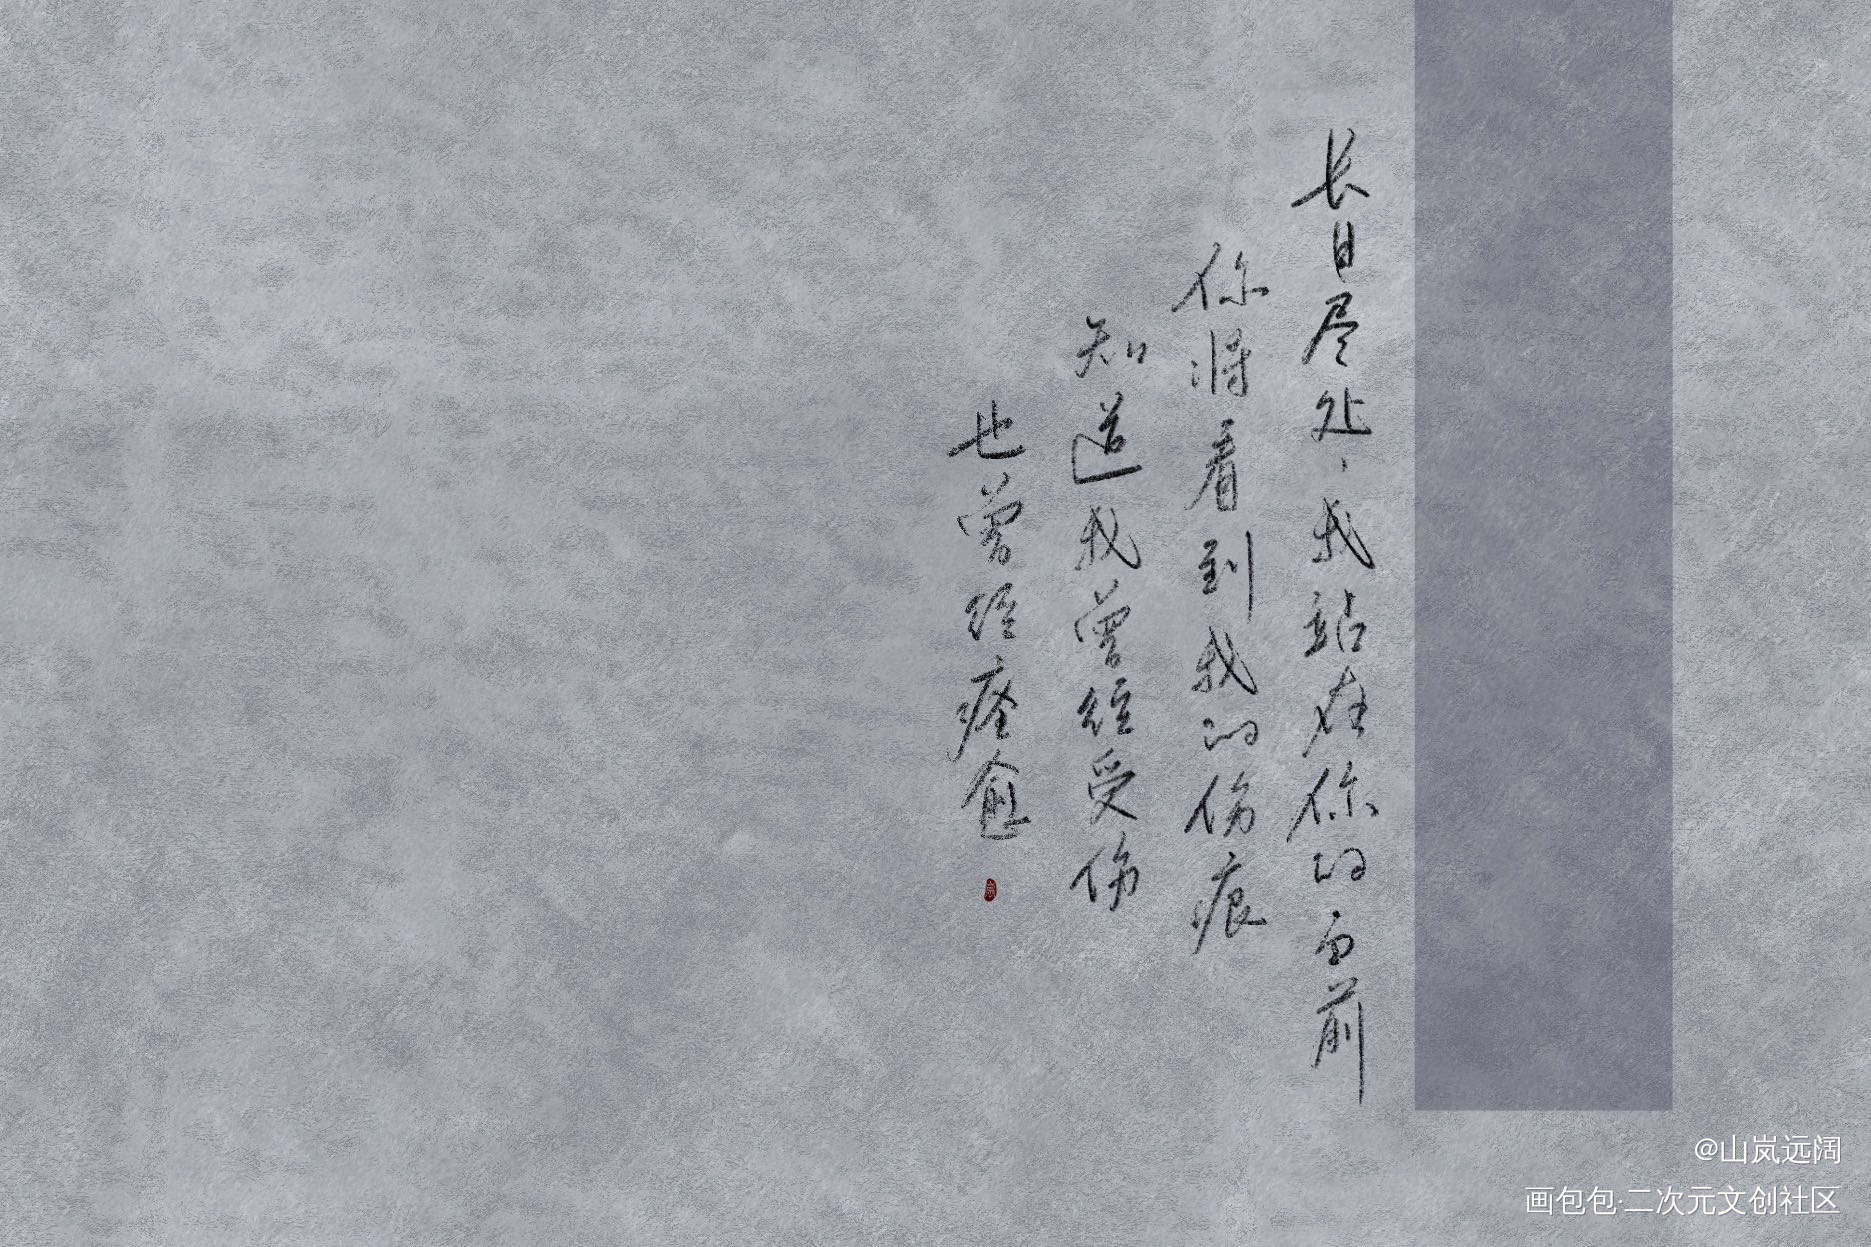 长日尽处，我站在你的面前
你将看到我的伤痕
知道我曾经受伤
也曾经痊愈
@山岚远阔
画包包·二次元文创社区